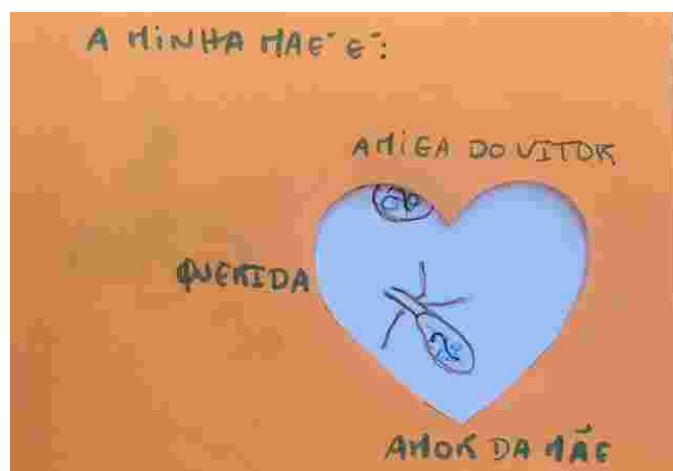 A MINHA MAE É:
AMIGA DO VITOR
QUERIDA
AMOR DA MÃE